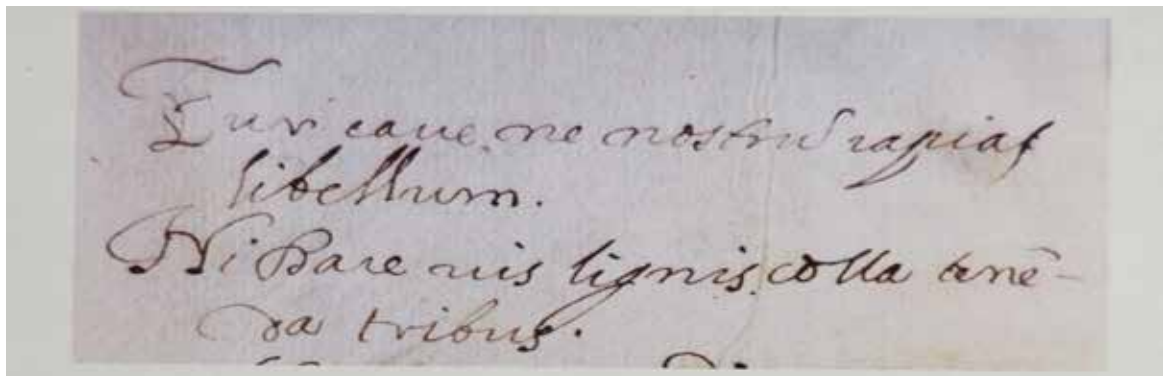 Furi caue ne nostrū rapias
libellum.
Ni Dare uis lignis colla tenē-
da tribus.